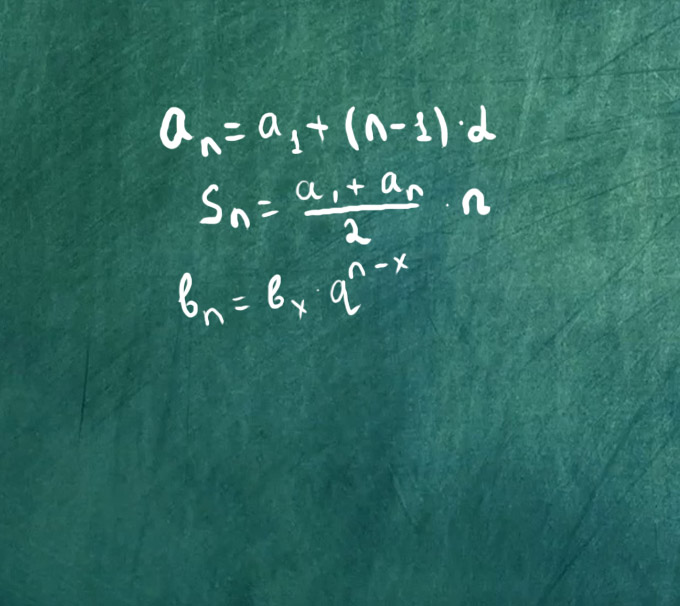 aₙ = a₁ + (n-1)·d
Sₙ = (a₁ + aₙ)/2 · n
bₙ = bₓ · qⁿ⁻ˣ